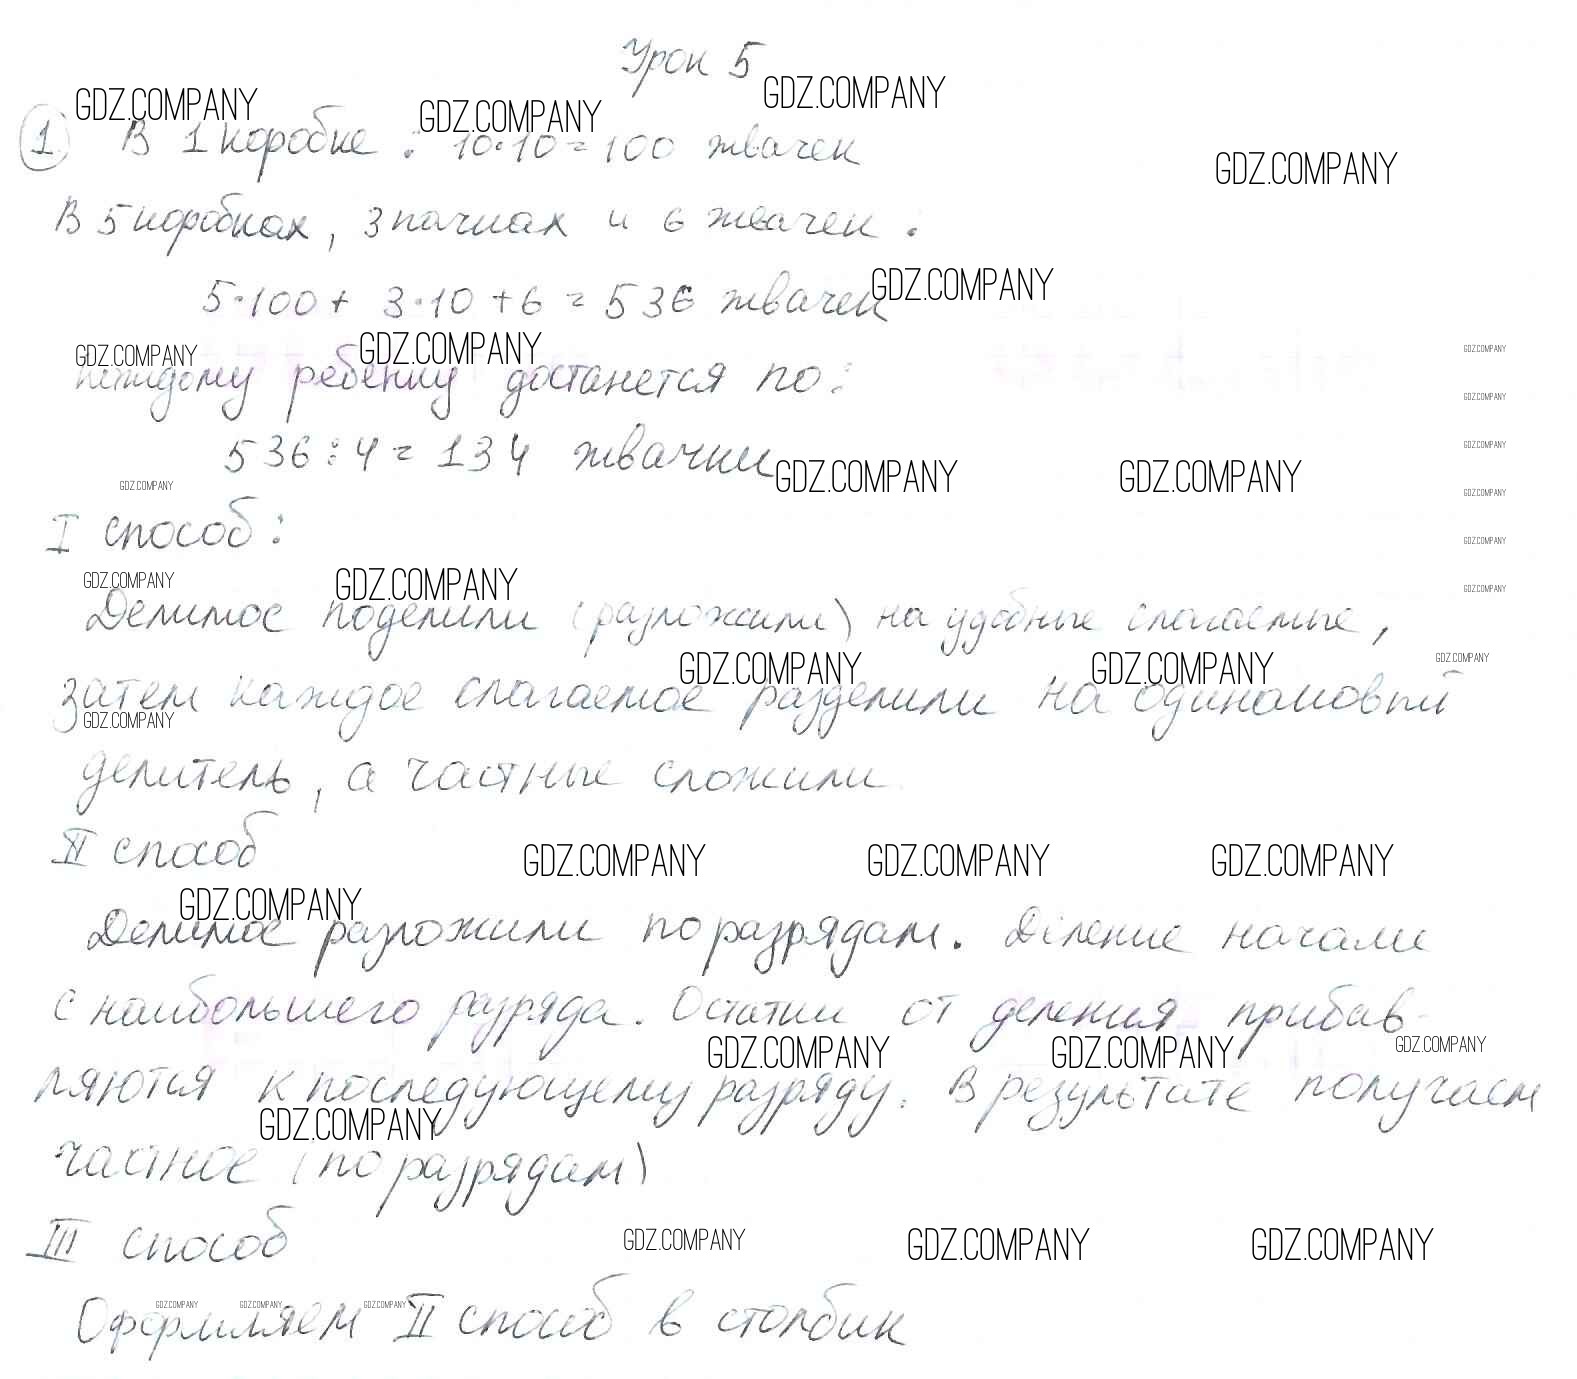 Урок 5
GDZ.COMPANY GDZ.COMPANY GDZ.COMPANY
1. В 1 коробке: 10·10=100 жвачек
GDZ.COMPANY
В 5 коробках, 3 пачках и 6 жвачек:
5·100+ 3·10+6=536 жвачек
GDZ.COMPANY
GDZ.COMPANY GDZ.COMPANY GDZ.COMPANY
каждому ребёнку достанется по:
GDZ.COMPANY
536:4=134 жвачки
GDZ.COMPANY
GDZ.COMPANY GDZ.COMPANY GDZ.COMPANY GDZ.COMPANY
I способ:
GDZ.COMPANY
GDZ.COMPANY GDZ.COMPANY GDZ.COMPANY
Делимое поделили (разложили) на удобные слагаемые,
GDZ.COMPANY GDZ.COMPANY GDZ.COMPANY
затем каждое слагаемое разделили на одинаковый
GDZ.COMPANY
делитель, а частные сложили
II способ
GDZ.COMPANY GDZ.COMPANY GDZ.COMPANY
GDZ.COMPANY
Делимое разложили по разрядам. Деление начали
с наибольшего разряда. Остатки от деления прибав-
GDZ.COMPANY GDZ.COMPANY GDZ.COMPANY
ляются к последующему разряду. В результате получаем
GDZ.COMPANY
частное (по разрядам)
III способ
GDZ.COMPANY GDZ.COMPANY GDZ.COMPANY
GDZ.COMPANY GDZ.COMPANY GDZ.COMPANY
Оформляем II способ в столбик